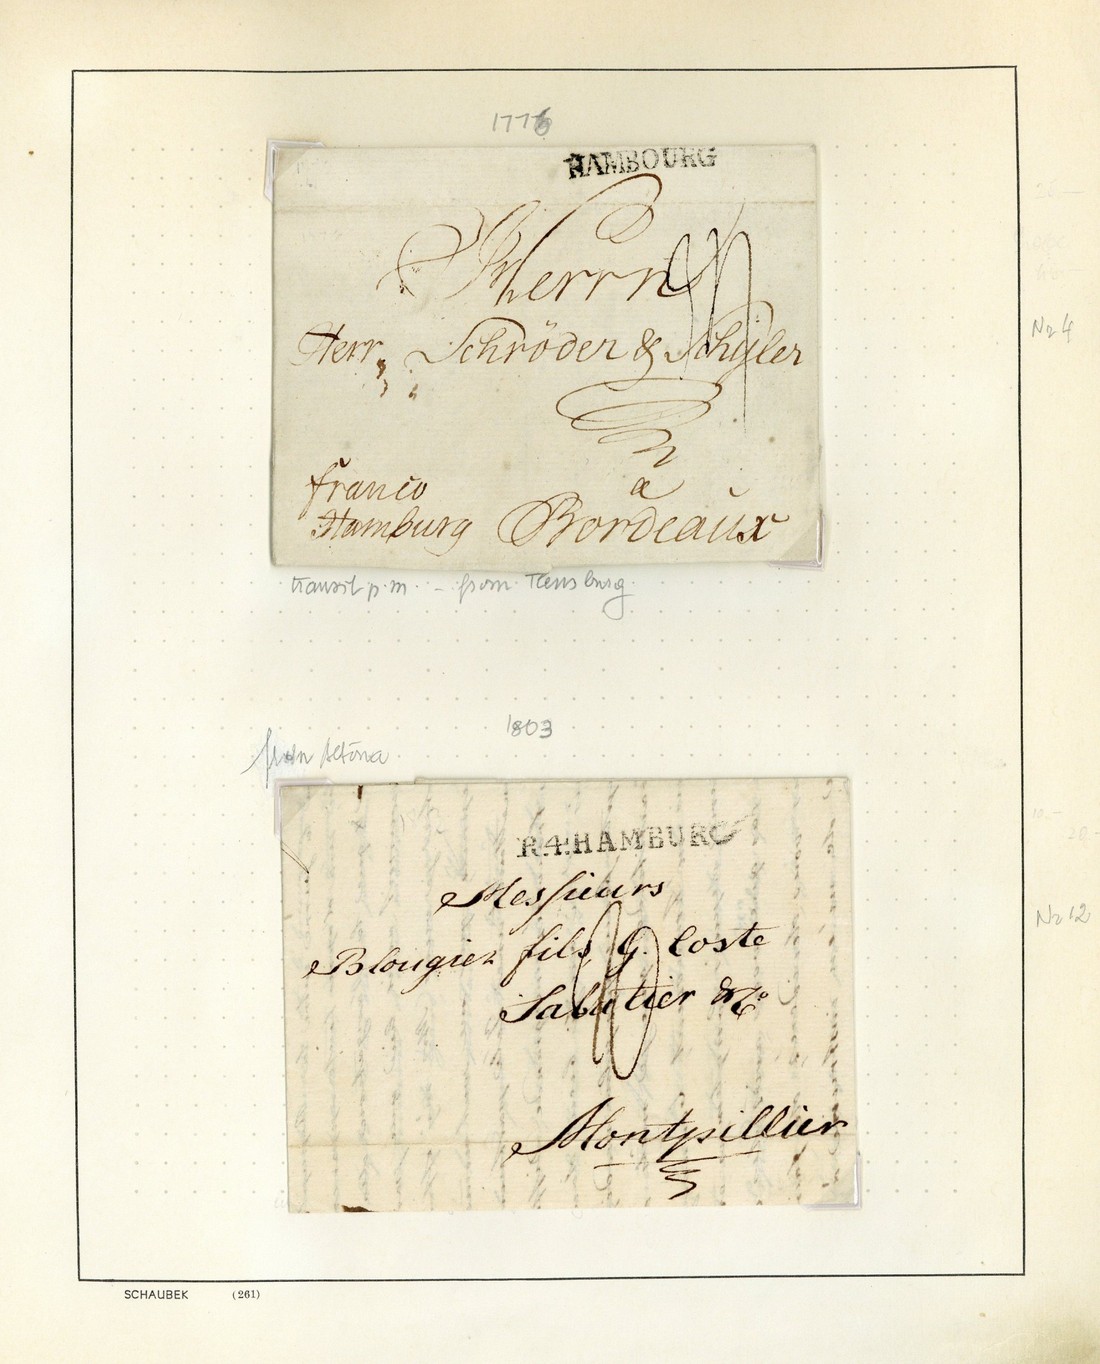 1776
HAMBOURG
Herrn
Herr Schröder & Schÿler
franco
Hamburg
a
Bordeaux
transit p.m. – from
Nr 4
1803
from Altona
R.4.HAMBURG
Messieurs
Blougier fils G. Coste
Sabatier & Co
Montpillier
Nr 12
SCHAUBEK (261)